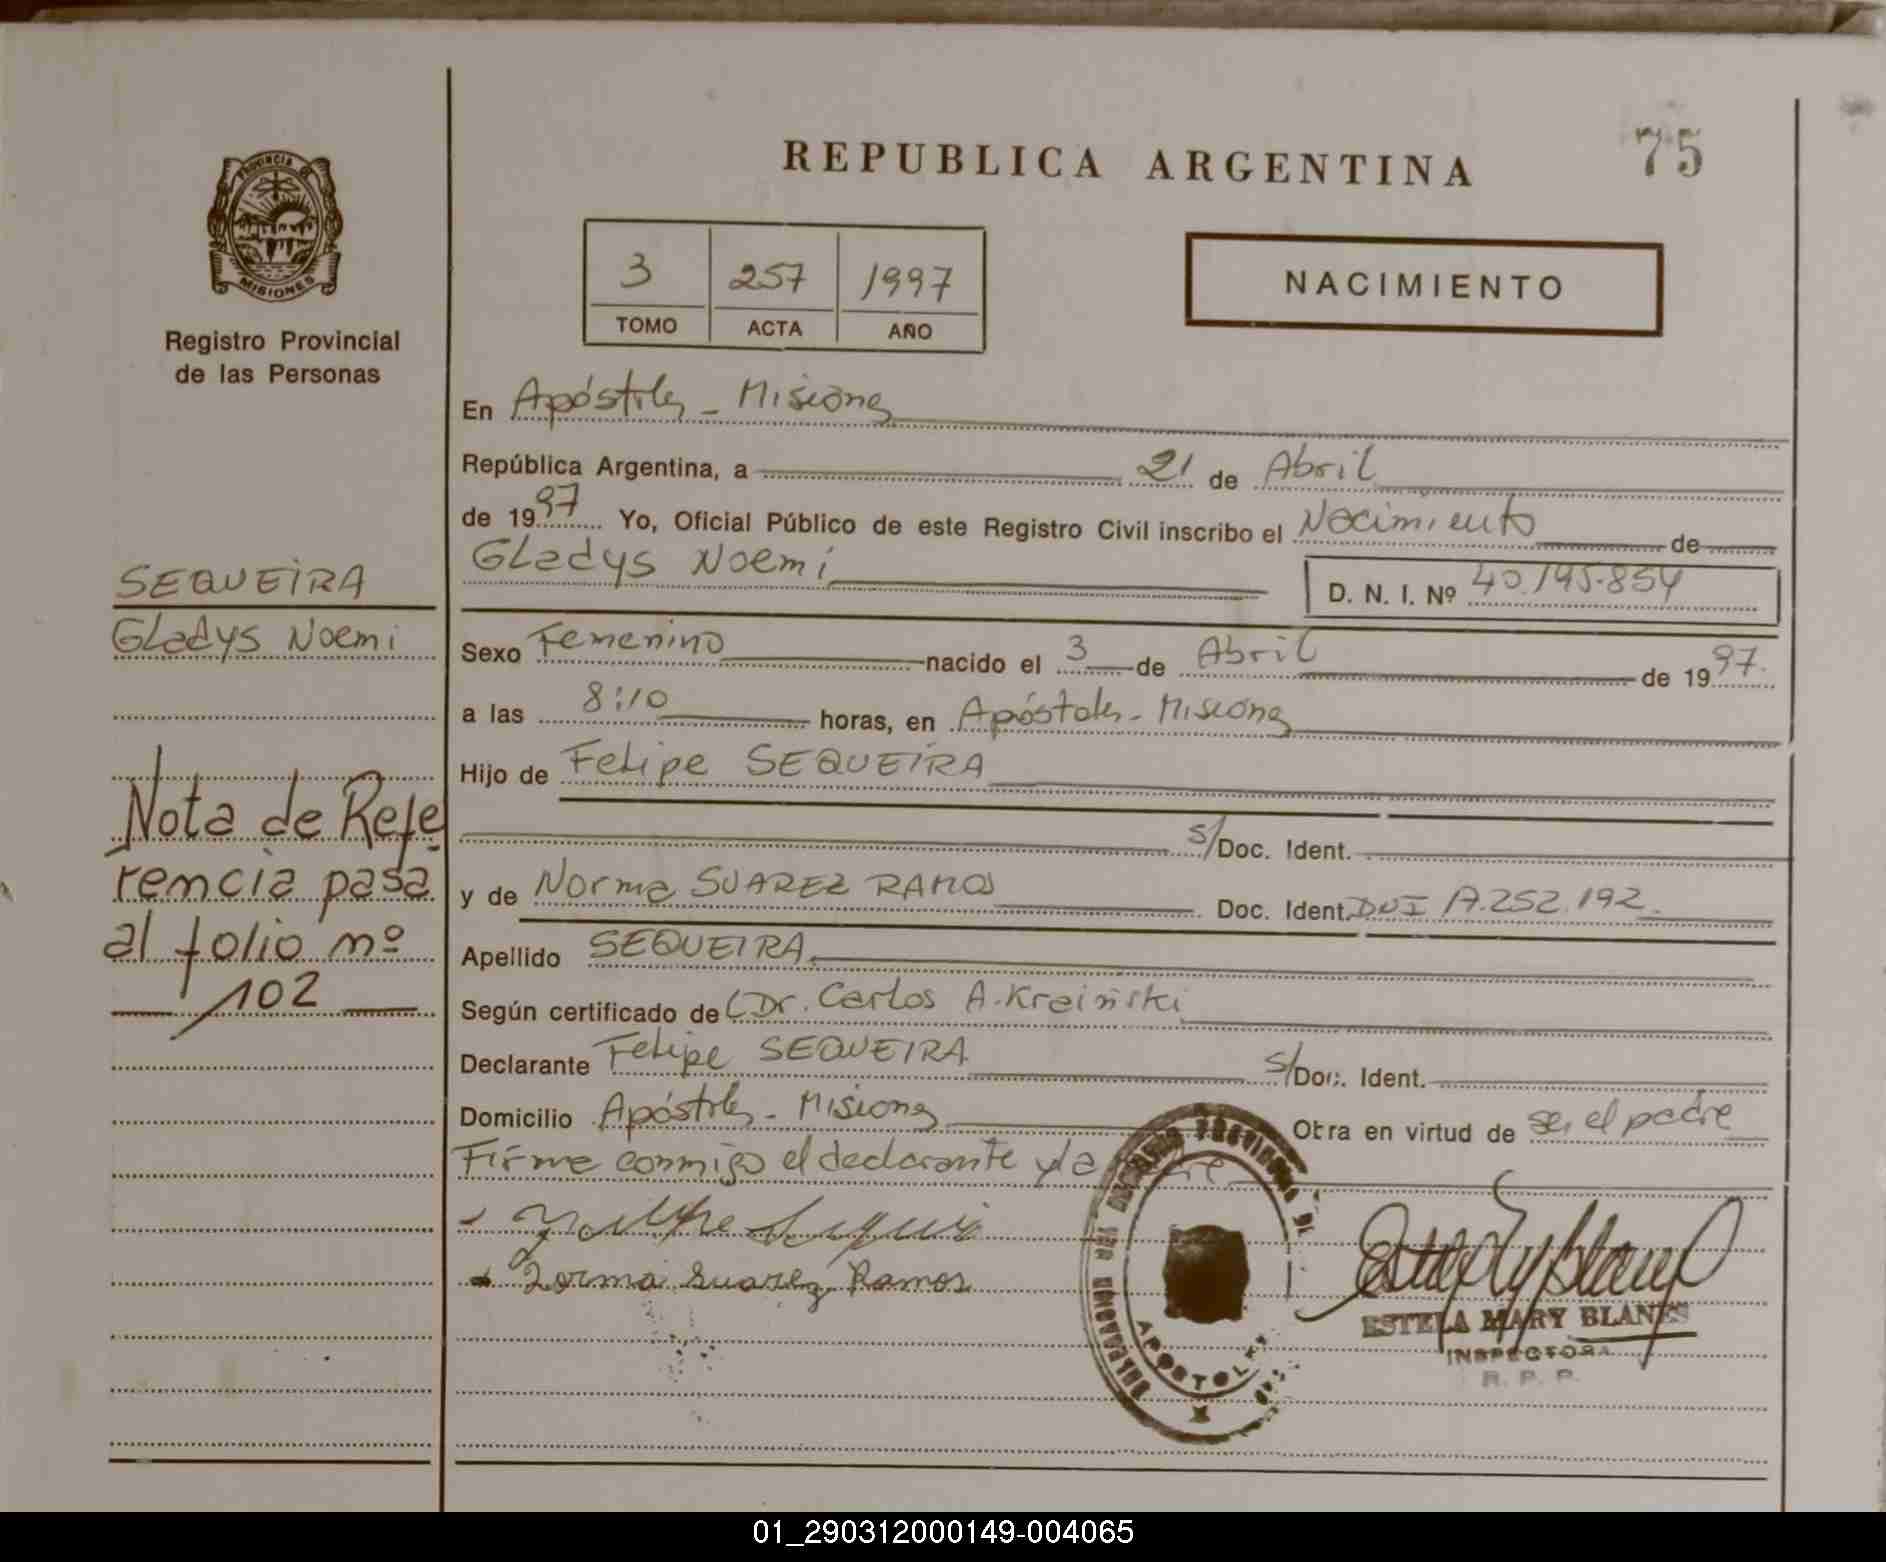 REPUBLICA ARGENTINA
75
PROVINCIA DE
MISIONES
Registro Provincial
de las Personas
3 257 1997
TOMO ACTA AÑO
NACIMIENTO
En Apóstoles - Misiones
República Argentina, a 21 de Abril
de 1997 Yo, Oficial Público de este Registro Civil inscribo el Nacimiento de
Gladys Noemi
D. N. I. Nº 40.195.854
SEQUEIRA
Gladys Noemi
Sexo Femenino nacido el 3 de Abril de 1997.
a las 8:10 horas, en Apóstoles - Misiones
Hijo de Felipe SEQUEIRA
s/Doc. Ident.
y de Norma SUAREZ RAMOS Doc. Ident. DNI 17.252.192.
Apellido SEQUEIRA
Según certificado de Dr. Carlos A. Kreiñski
Declarante Felipe SEQUEIRA s/Doc. Ident.
Domicilio Apóstoles - Misiones Obra en virtud de ser el padre
Firma conmigo el declarante y la
Nota de Refe
rencia pasa
al folio nº
102
Norma Suarez Ramos
APOSTOLES
ESTELA MARY BLANES
INSPECTORA
R. P. P.
01_290312000149-004065